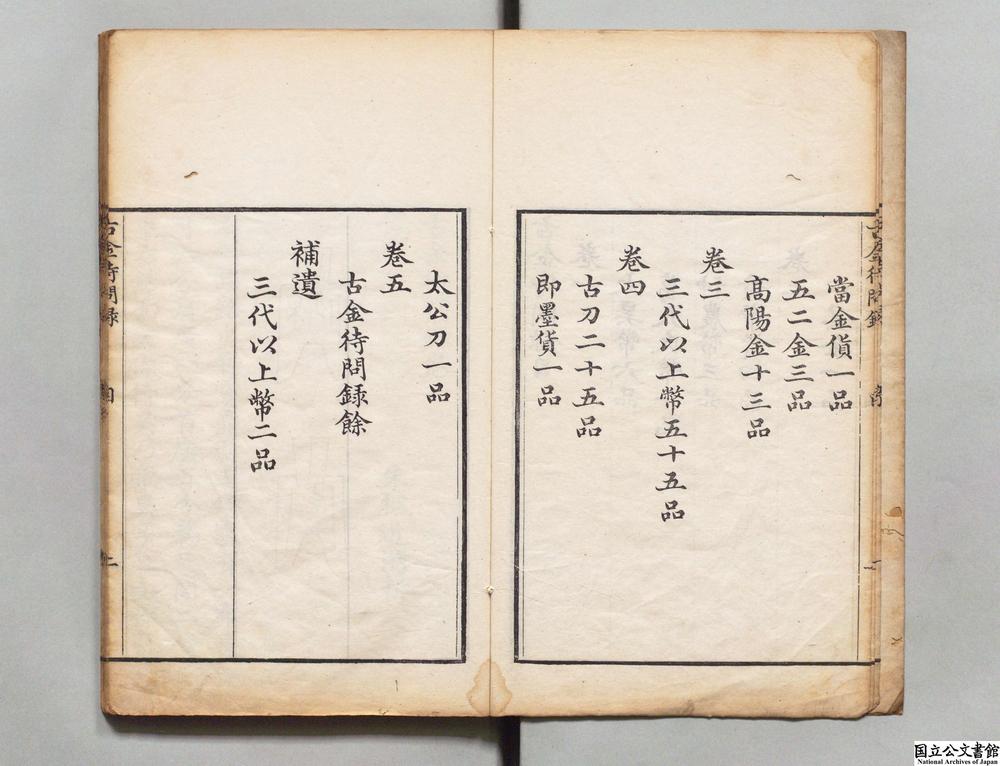 當金貨一品
五二金三品
髙陽金十三品
卷三
三代以上幣五十五品
卷四
古刀二十五品
即墨貨一品
太公刀一品
卷五
古金待問録餘
補遺
三代以上幣二品
古金待問録
国立公文書館
National Archives of Japan